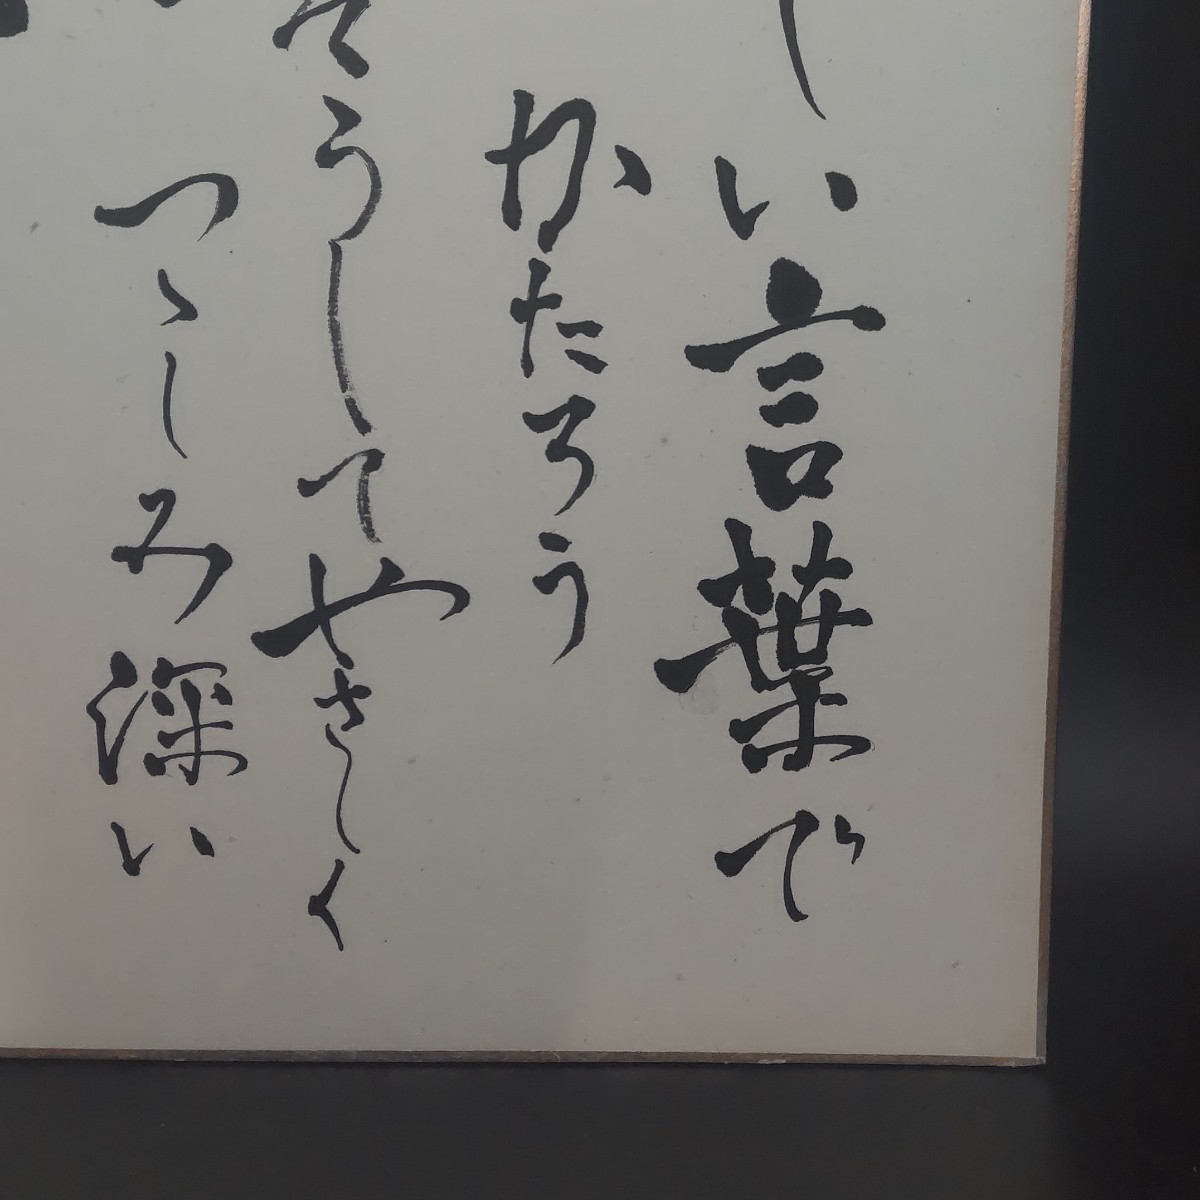 しい言葉で
かたろう
そうしてやさしく
つゝしみ深い